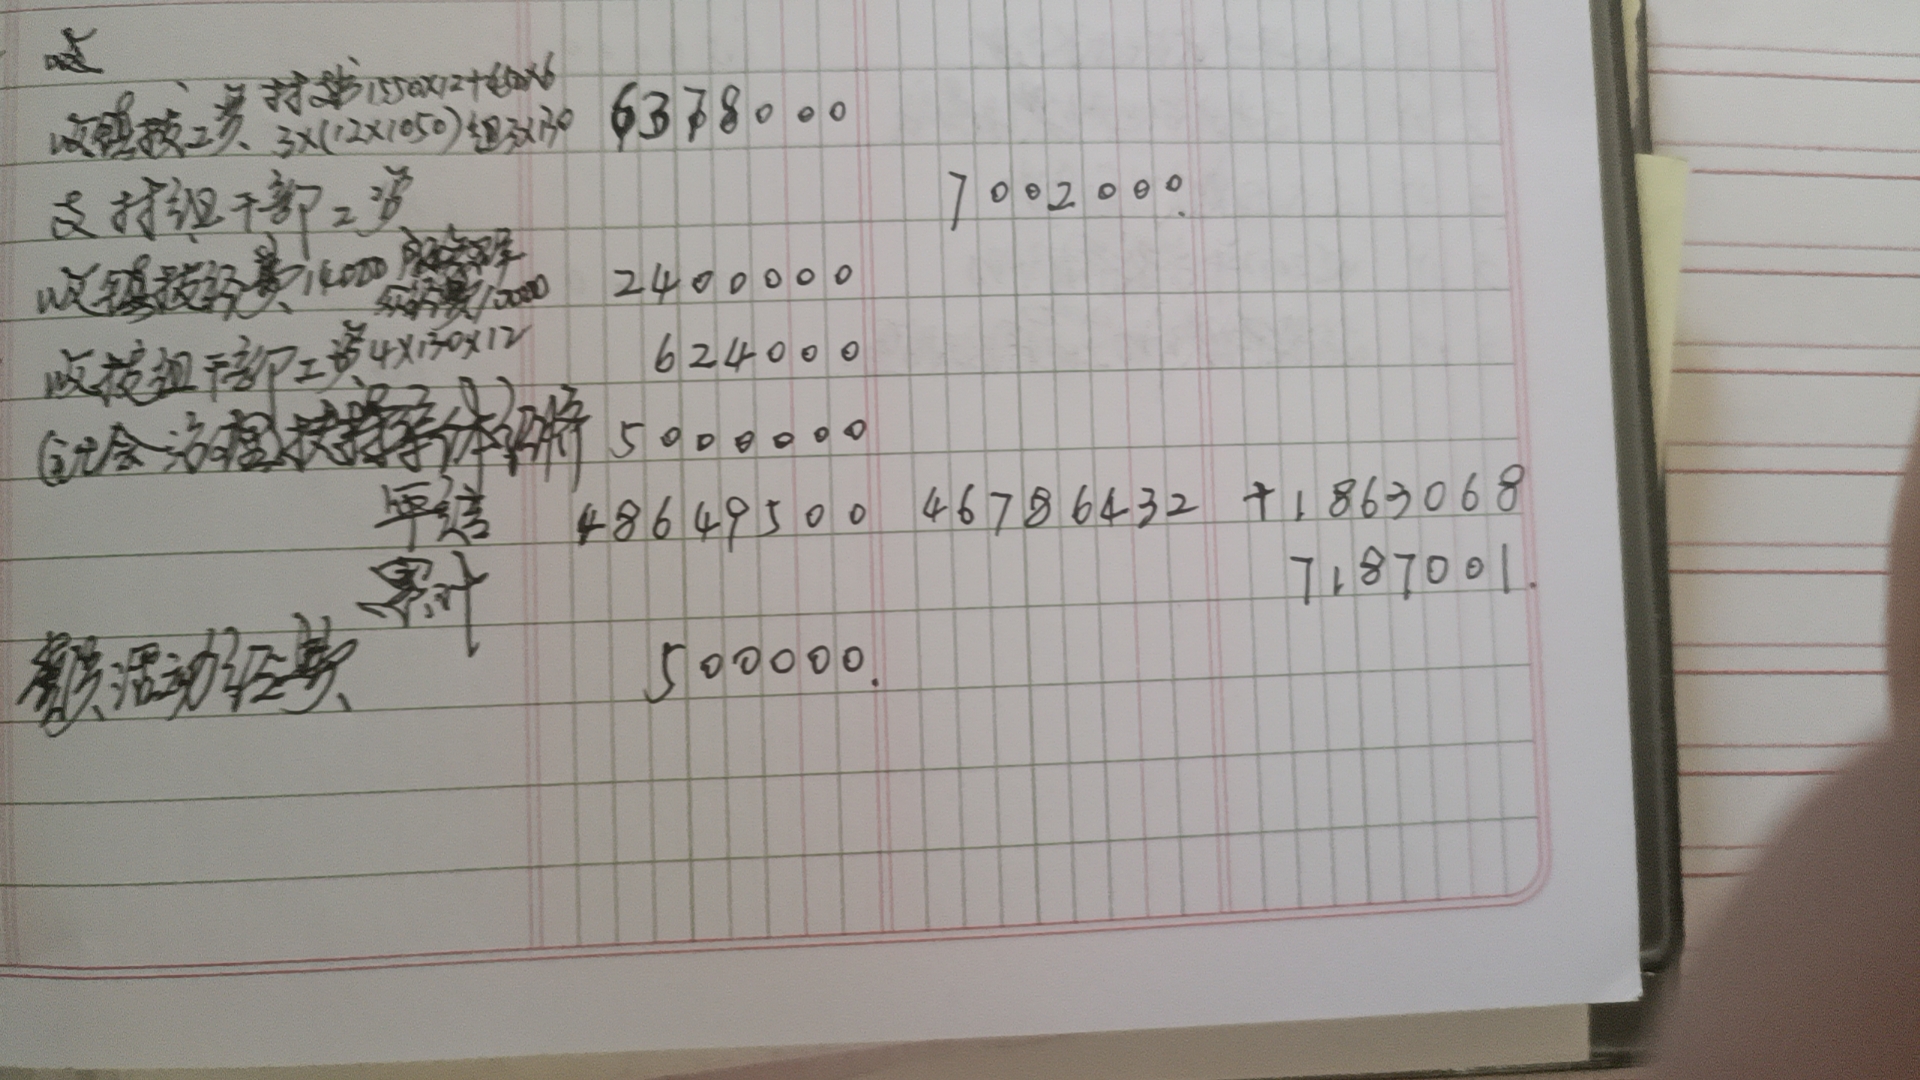 收镇拨工资 村书1550×12+650×6
3×(12×1050) 组3×130 6378000
支村组干部工资 7002000.
收镇拨经费14000
经费10000 2400000
收拨组干部工资4×130×12 624000
社会治理 5000000
年结 48649500 46786432 +1863068
累计 7187001.
党员活动经费 500000.